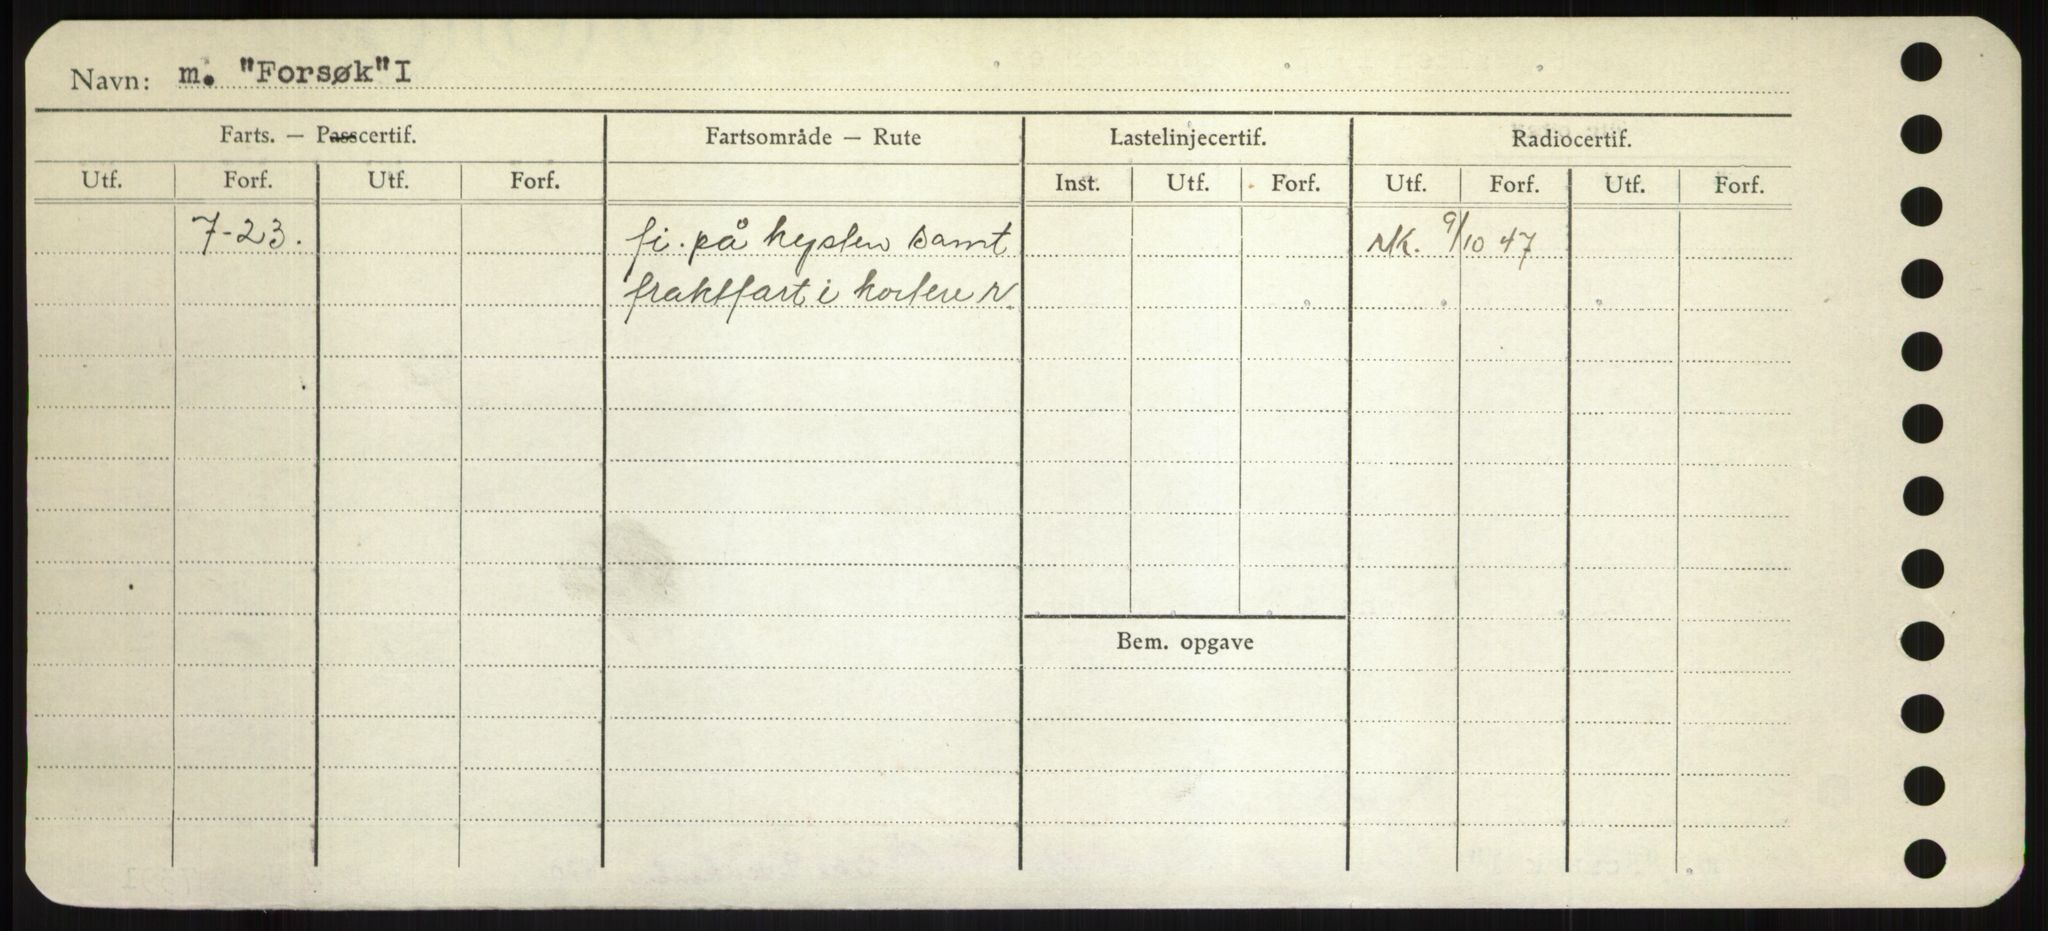 Navn: m. "Forsøk" I
Farts. — Passcertif. Fartsområde — Rute Lastelinjecertif. Radiocertif.
Utf. Forf. Utf. Forf. Inst. Utf. Forf. Utf. Forf. Utf. Forf.
7-23. fi. på kysten samt rk. 9/10 47
fraktfart i
Bem. opgave